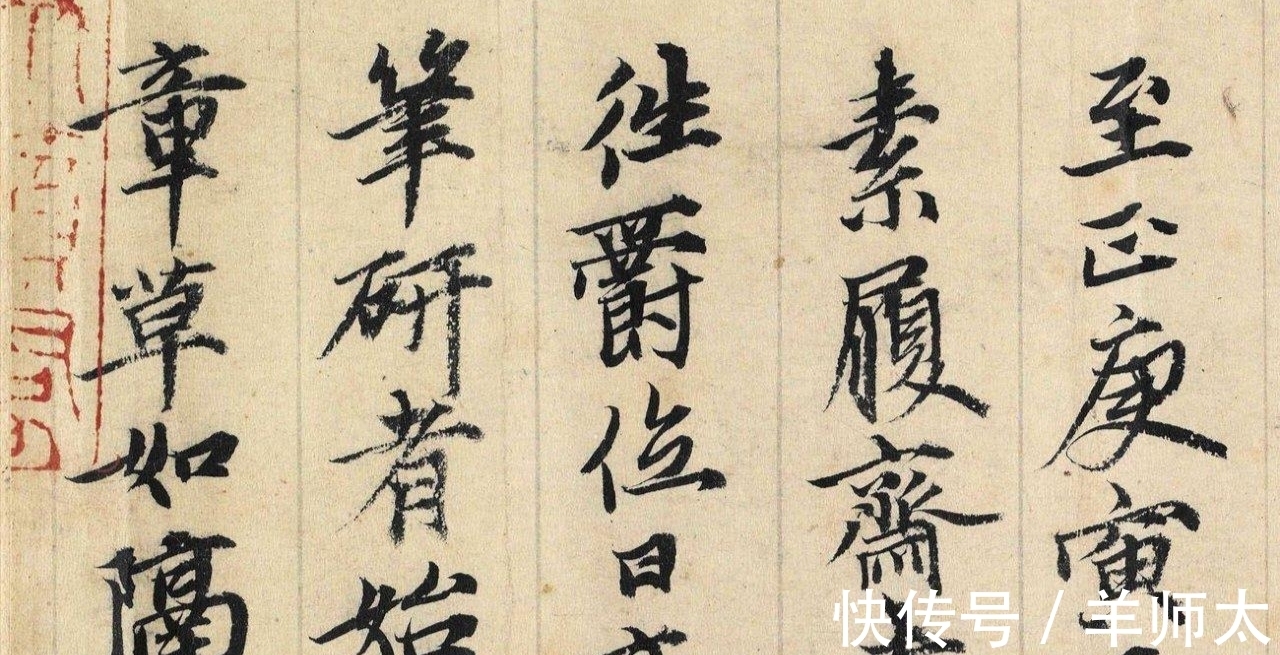 至正庚寅
素履齋
往爵位日
筆研者始
章草如隔
快传号 / 羊师太